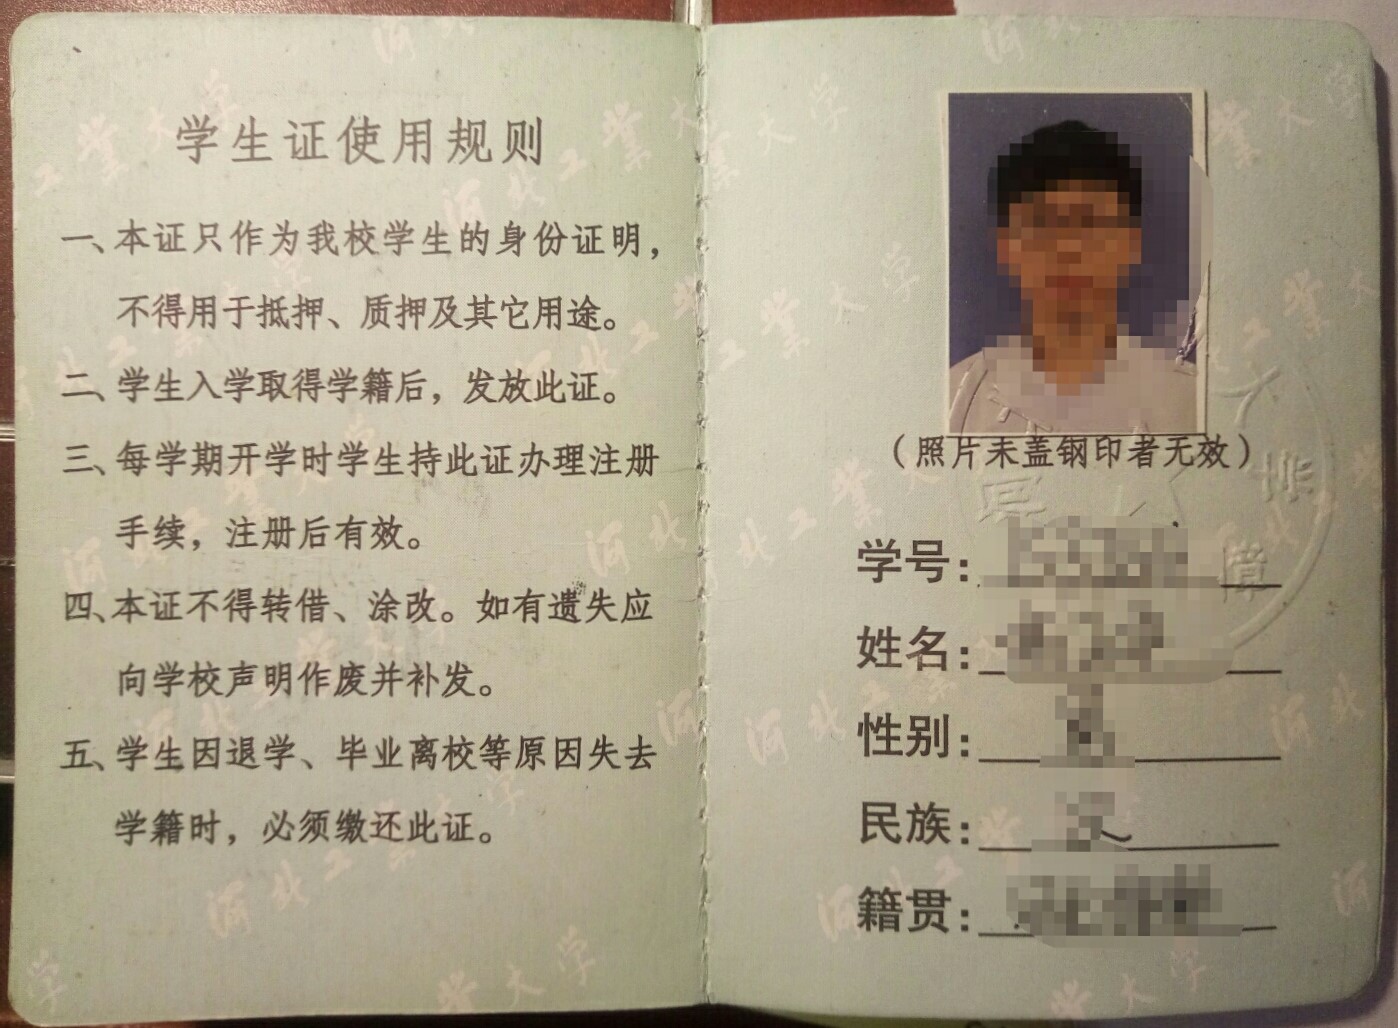 学生证使用规则
一、本证只作为我校学生的身份证明，
不得用于抵押、质押及其它用途。
二、学生入学取得学籍后，发放此证。
三、每学期开学时学生持此证办理注册
手续，注册后有效。
四、本证不得转借、涂改。如有遗失应
向学校声明作废并补发。
五、学生因退学、毕业离校等原因失去
学籍时，必须缴还此证。
（照片未盖钢印者无效）
学号：
姓名：
性别：
民族：
籍贯：
河北工业大学